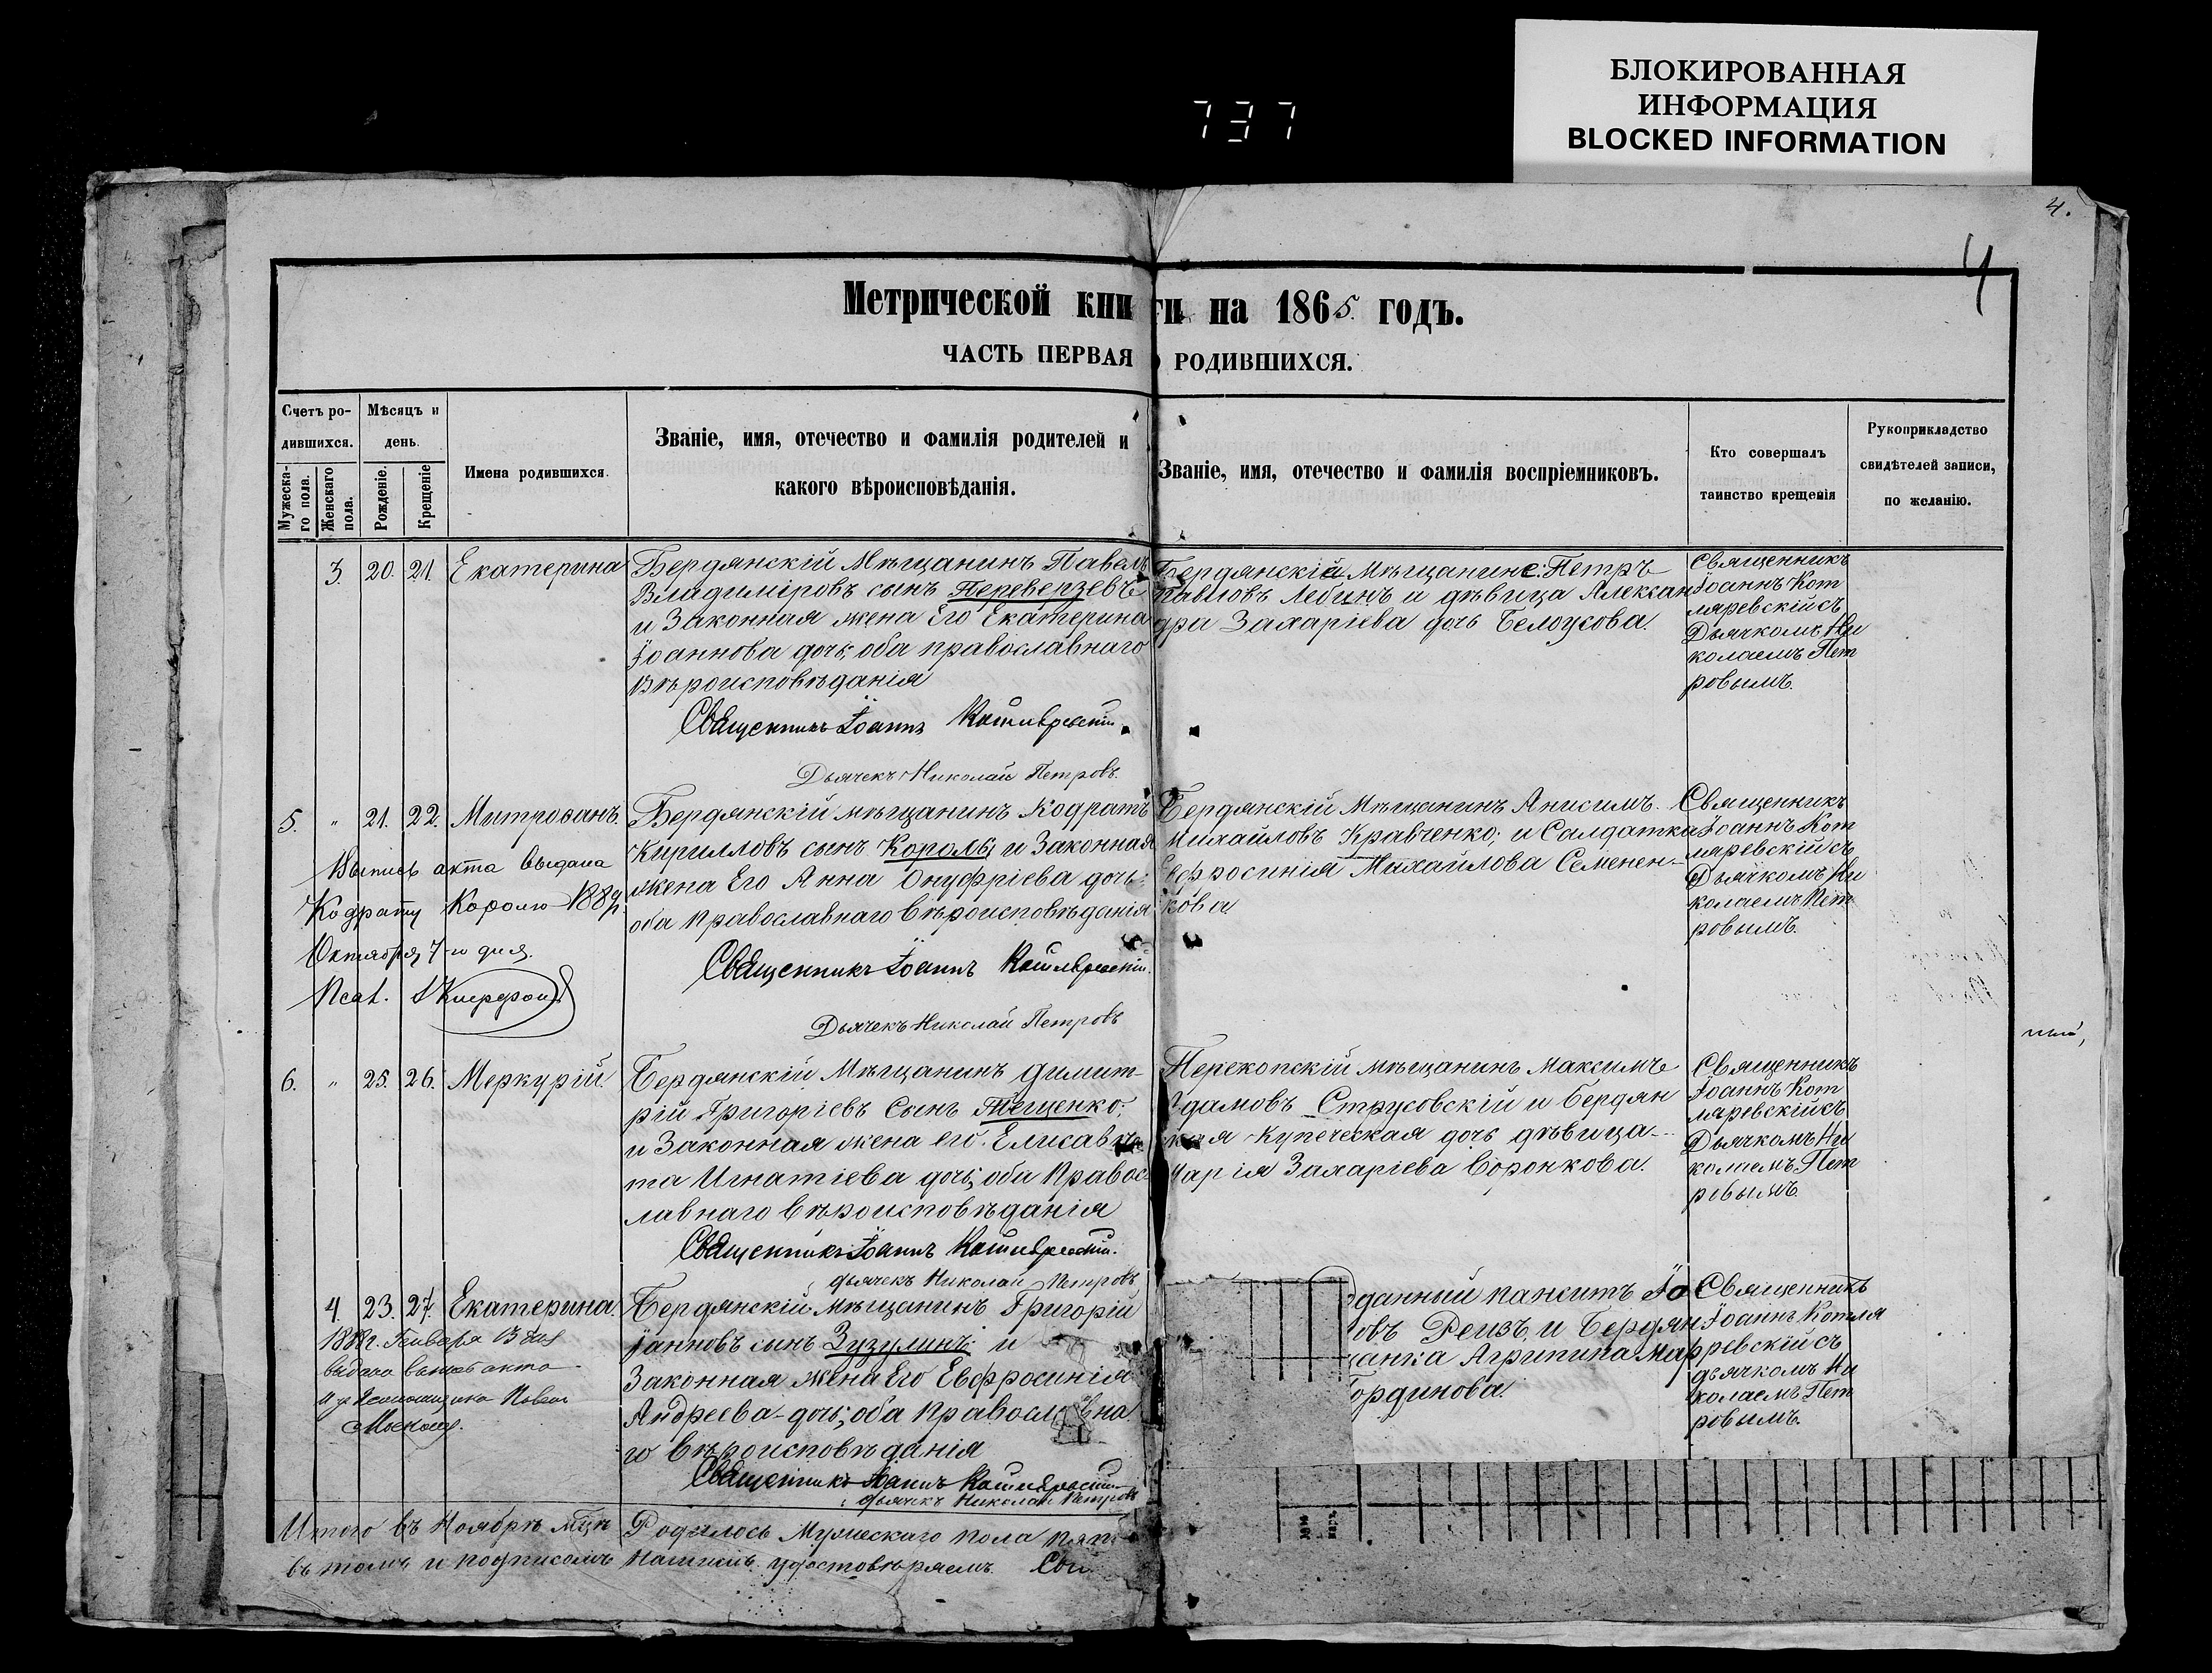 БЛОКИРОВАННАЯ
ИНФОРМАЦИЯ
BLOCKED INFORMATION
737
4.
4
Метрической книги на 1865. годъ.
ЧАСТЬ ПЕРВАЯ О РОДИВШИХСЯ.
Счетъ ро-
дившихся.
Мужеска-
го пола.
Женскаго
пола.
Мѣсяцъ и
день.
Рожденіе.
Крещеніе
Имена родившихся.
Званіе, имя, отечество и фамилія родителей и
какого вѣроисповѣданія.
Званіе, имя, отечество и фамилія воспріемниковъ.
Кто совершалъ
таинство крещенія
Рукоприкладство
свидѣтелей записи,
по желанію.
3. 20. 21. Екатерина
Бердянскій Мѣщанинъ Павелъ
Владиміровъ сынъ Переверзевъ
и Законная жена Его Екатерина
Іоаннова дочь; оба православнаго
Вѣроисповѣданія
Священникъ Іоаннъ Котляревскій.
Дьячекъ Николай Петровъ.
Бердянскій Мѣщанинъ Петръ
Павловъ Лебинъ и дѣвица Алексан
дра Захаріева дочь Белоусова.
Священникъ
Іоаннъ Кот
ляревскій съ
Дьячкомъ Ни
колаемъ Пет
ровымъ.
5. " 21. 22. Митрофанъ
Выпись акта выдана
Кодрату Королю 188
Октября 7-го дня.
Псал.
Бердянскій мѣщанинъ Кодратъ
Кирилловъ сынъ Король; и Законная
жена Его Анна Онуфріева дочь;
оба Православнаго вѣроисповѣданія
Священникъ Іоаннъ Котляревскій.
Дьячекъ Николай Петровъ
Бердянскій Мѣщанинъ Анисимъ
Михайловъ Кравченко; и Солдатка
Ефросинія Михайлова Семенен-
кова
Священникъ
Іоаннъ Кот
ляревскій съ
Дьячкомъ Ни
колаемъ Пет
ровымъ.
6. " 25. 26. Меркурій
Бердянскій Мѣщанинъ Димит-
рій Григоріевъ Сынъ Тещенко;
и Законная жена его Елисаве
та Игнатіева дочь; оба Правос-
лавнаго вѣроисповѣданія
Священникъ Іоаннъ Котляревскій.
дьячекъ Николай Петровъ
Перекопскій мѣщанинъ Максимъ
Адамовъ Струсовскій и Бердян
кая Купеческая дочь дѣвица
Марія Захаріева Воронкова.
Священникъ
Іоаннъ Кот
ляревскій съ
Дьячкомъ Ни
колаемъ Пет
ровымъ.
4. 23. 27. Екатерина.
Января
выдана выпись акта
Бердянскій Мѣщанинъ Григорій
Іанновъ сынъ Зузулинъ; и
Законная Жена Его Евфросинія
Андреева дочь; оба православна
го вѣроисповѣданія
Священникъ Іоаннъ Котляревскій
дьячекъ Николай Петровъ
данный Іо
овъ Реизъ, и Бердян
щанка Агрипина Мар
Гординова.
Священникъ
Іоаннъ Котля
ревскій съ
дьячкомъ Ни
колаемъ Пет
ровымъ.
Итого въ Ноябрѣ м̃цѣ Родилось Мужескаго пола пять
въ томъ и подписомъ нашимъ удостовѣряемъ.